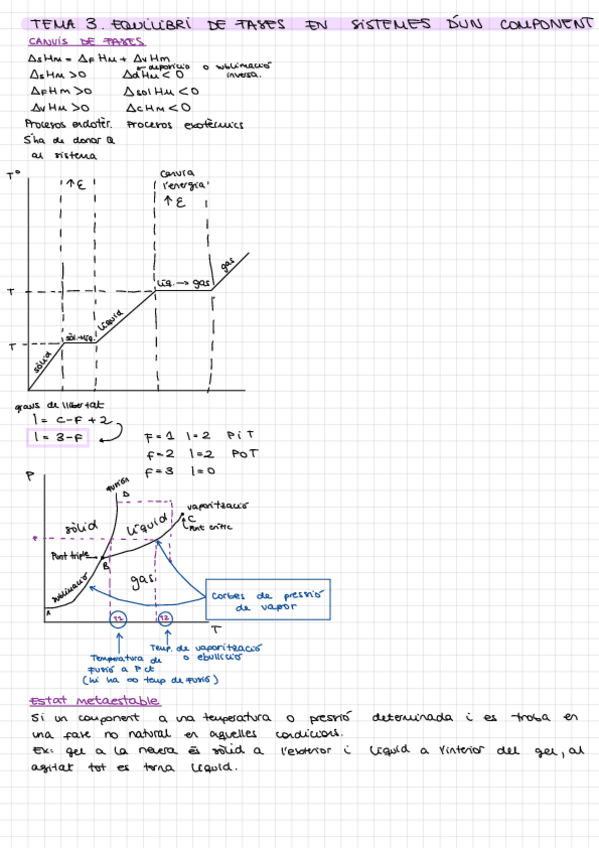 TEMA 3. EQUILIBRI DE FASES EN SISTEMES D'UN COMPONENT
CANVIS DE FASES
ΔsHm = ΔFHm + ΔvHm
deposició o sublimació
inversa.
ΔsHm >0 ΔdHm <0
ΔFHm >0 ΔsolHm <0
ΔvHm >0 ΔcHm <0
Processos endotèr. Processos exotèrmics
S'ha de donar Q
al sistema
Tº
↑ε
Canvia
l'energia
↑ε
gas
líq. → gas
T
líquid
sòl-líq.
T
sòlid
graus de llibertat
l = C-F+2
l = 3-F
F=1 l=2 P i T
F=2 l=2 P o T
F=3 l=0
P
fusió
D
vaporització
C
Punt crític
sòlid
líquid
Punt triple
B
gas
sublimació
A
Corbes de pressió
de vapor
T1
T2
T
Temp. de vaporització
o ebullició
Temperatura de
fusió a P ct
(hi ha ∞ temp de fusió)
Estat metaestable
Si un component a una temperatura o pressió determinada i es troba en
una fase no natural en aquelles condicions.
Ex: gel a la nevera és sòlid a l'exterior i líquid a l'interior del gel, al
agitat tot es torna líquid.